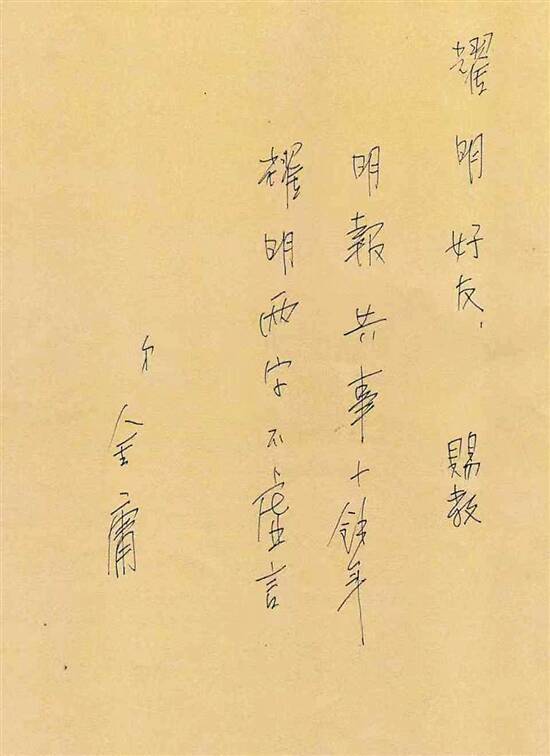 耀明好友: 賜教
明報共事十餘年
耀明兩字不虛言
弟 金庸